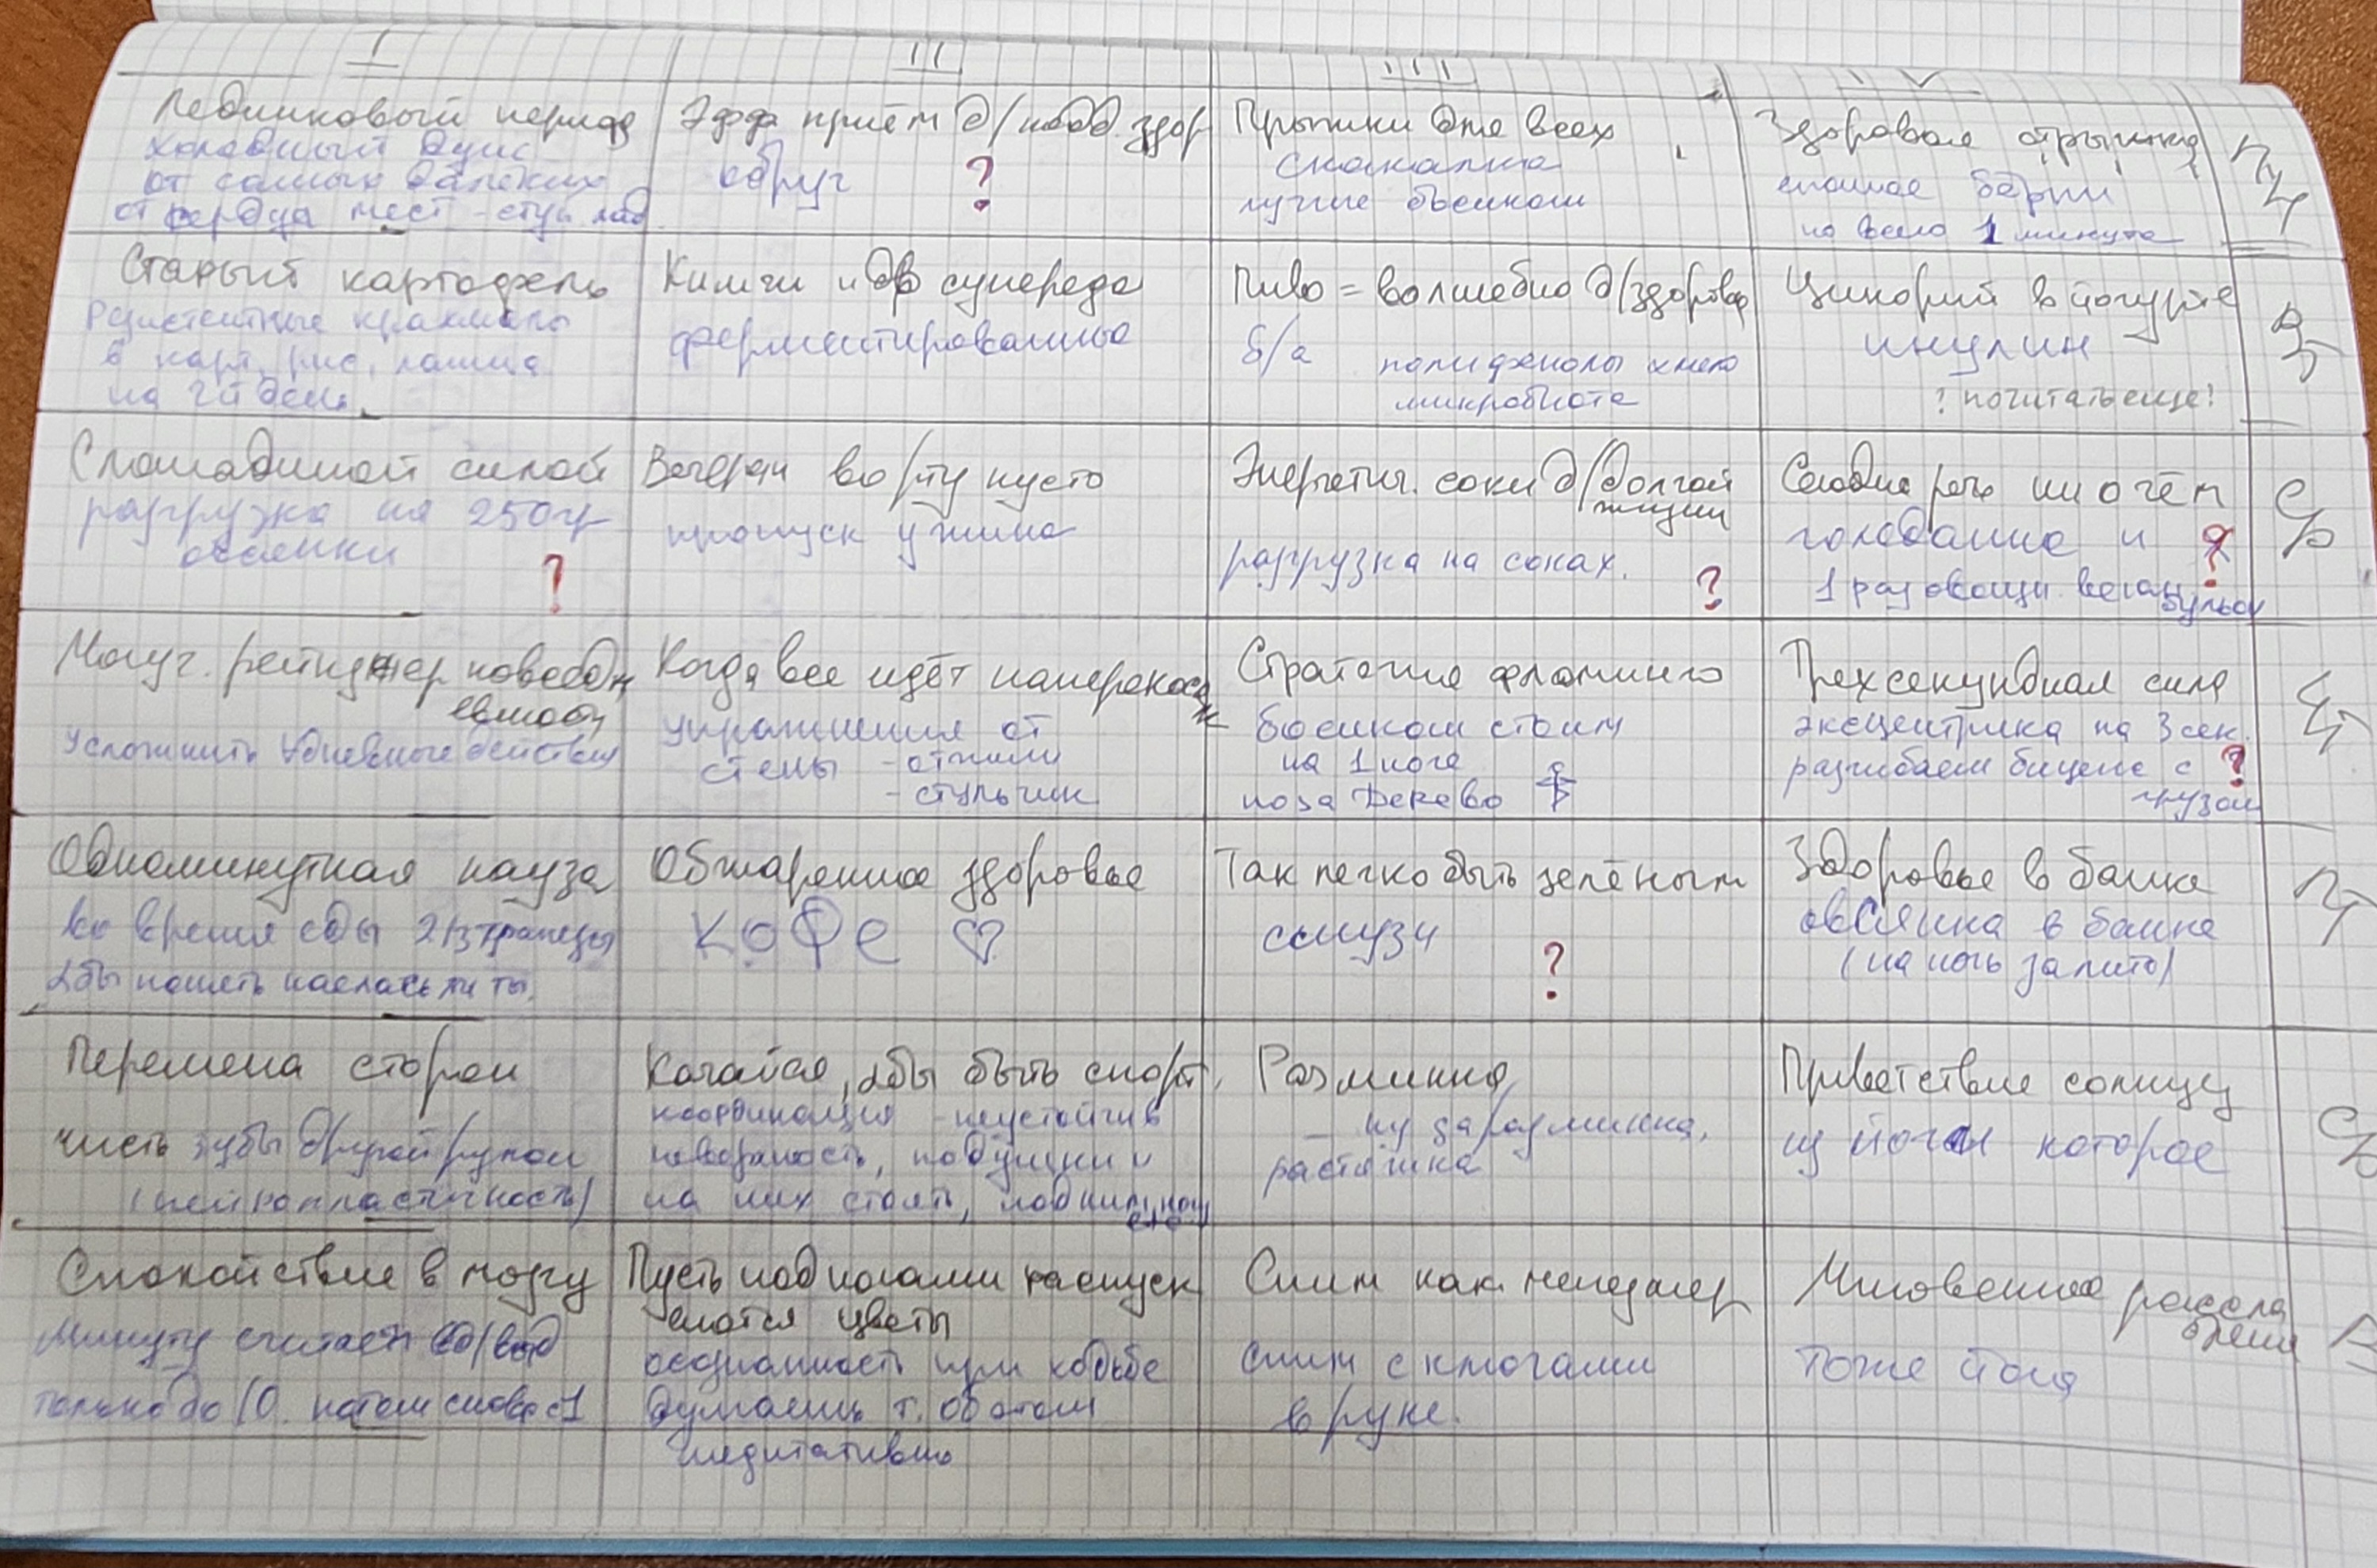 I
II
III
IV
Ледниковый период
холодный душ
от самых далёких
от сердца мест - стуи
Эфф приём д/подд. здор
обруч ?
Прыжки для всех
скакалка
лучше босиком
Здоровая отрыжка
на всего 1 минута
ПН
Старый картофель
Резистентные крахмалы
в карт, рис, лапша
на 2й день.
Кимчи и др суперeда
ферментированные
Пиво = волшебно д/здоровья
б/а полифенолы хмеля
микробиота
Цикорий в йогурте
инулин
? почитать еще!
ВТ
С лошадиной силой
разгрузка на 250гр
овсянки
?
Вечером во рту пусто
пропуск ужина
Энергетич. соки д/долгой
жизни
разгрузка на соках. ?
Сегодня речь ни о чём
голодание и ?
1 раз овощн. веган бульон
СР
Могуч. рейнджер повседн
евности
Усложнить дневные действия
Когда все идёт наперекосяк
упражнения от
стены - отжим
- стульчик
Стратегия фламинго
босиком стоим
на 1 ноге
поза Дерево
Трехсекундная сила
эксцентрика на 3 сек.
разгибаем бицепс с ?
грузом
ЧТ
Одноминутная пауза
во время еды 2/3 трапезы
дбы понять наелась ли ты.
Обжаренное здоровье
Кофе ♡
Так легко быть зелёным
смузи
?
Здоровье в банке
овсянка в банке
(на ночь залито)
ПТ
Перемена сторон
чисть зубы другой рукой
(нейропластичность)
Качайся, дбы быть спорт.
координация - неустойчив
поверхность, подушки и
на них стоять,
Разминка
- ну за разминка,
растяжка
Приветствие солнцу
из йоги которое
СБ
Спокойствие в мозгу
Минуту считаем вд/выд
только до 10. потом снова с 1
Пусть под ногами распуск
аются цветы
осознанность при ходьбе
думаешь т. об этом
медитативно
Спим как менеджер
спим с ключами
в руке.
Мгновенное рассла
бление
тоже йога
В